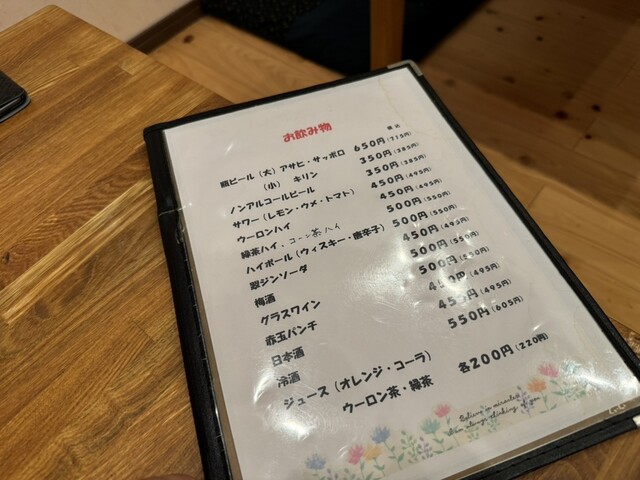 お飲み物
税込
瓶ビール（大）アサヒ・サッポロ 650円(715円)
（小） キリン 350円(385円)
ノンアルコールビール 350円(385円)
サワー（レモン・ウメ・トマト） 450円(495円)
ウーロンハイ 450円(495円)
緑茶ハイ・コーン茶ハイ 500円(550円)
ハイボール（ウィスキー・唐辛子） 500円(550円)
翠ジンソーダ 450円(495円)
梅酒 500円(550円)
グラスワイン 500円(550円)
赤玉パンチ 450円(495円)
日本酒 450円(495円)
冷酒 550円(605円)
ジュース（オレンジ・コーラ） 各200円(220円)
ウーロン茶・緑茶
Believe in miracles
always thinking of you